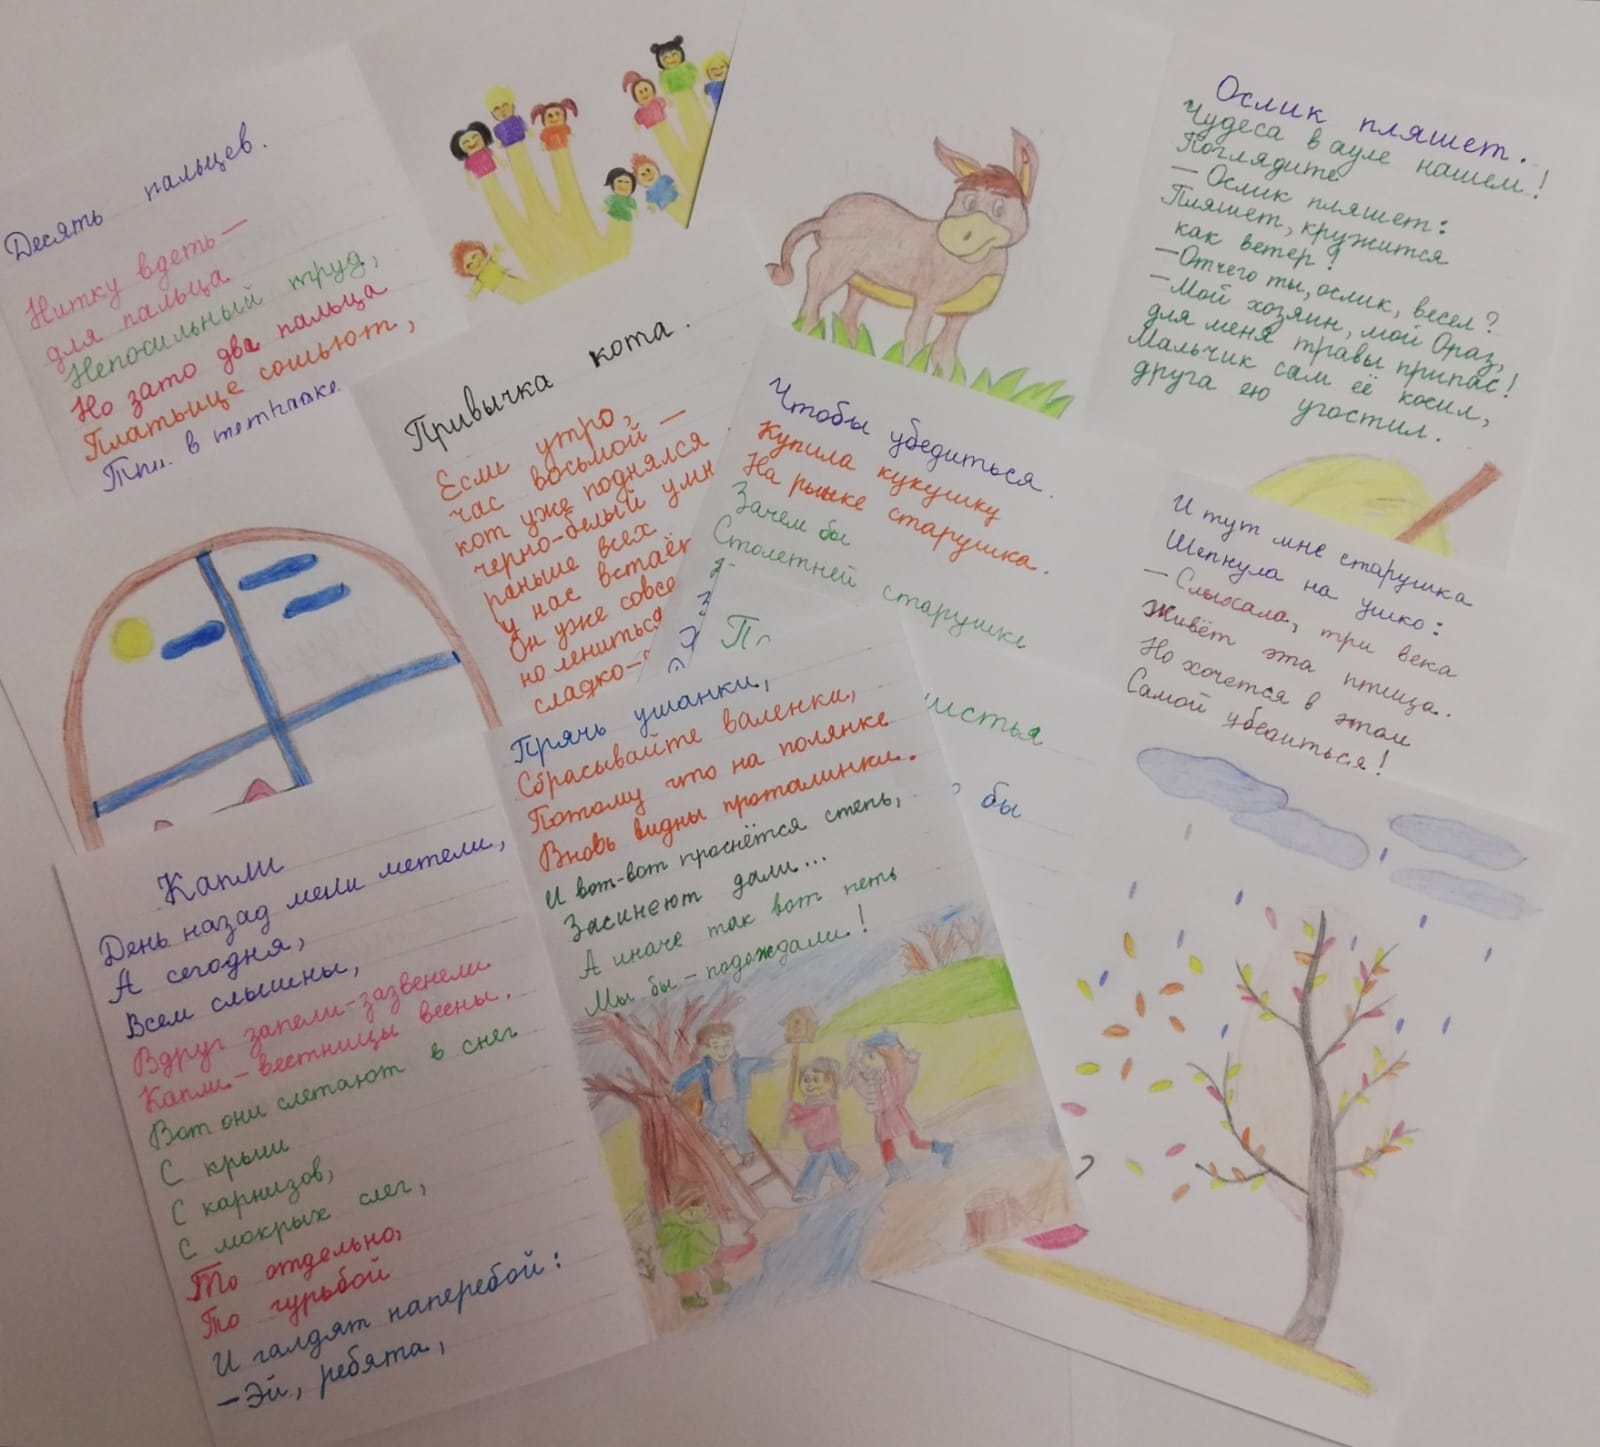 Десять пальцев.
Нитку вдеть —
для пальца
Непосильный труд,
Но зато два пальца
Платьице сошьют,
в тетрадке.
Привычка кота.
Если утро,
час восьмой —
кот уже поднялся
черно-белый умн
раньше всех
у нас встаёт
Он уже совсе
но лениться
сладко-
Чтобы убедиться.
Купила кукушку
На рынке старушка.
Зачем бы
Столетней старушке
Ослик пляшет.
Чудеса в ауле нашем!
Поглядите
— Ослик пляшет:
Пляшет, кружится
как ветер!
— Отчего ты, ослик, весел?
— Мой хозяин, мой Ораз,
для меня травы припас!
Мальчик сам её косил,
друга ею угостил.
И тут мне старушка
Шепнула на ушко:
— Слыхала, три века
Живёт эта птица.
Но хочется в этом
Самой убедиться!
листья
бы
Капли
День назад мели метели,
А сегодня,
Всем слышны,
Вдруг запели-зазвенели
Капли-вестницы весны.
Вот они слетают в снег
С крыш
С карнизов,
С мокрых слег,
То отдельно,
То гурьбой
И галдят наперебой:
— Эй, ребята,
Прячь ушанки,
Сбрасывайте валенки,
Потому что на полянке
Вновь видны проталинки.
И вот-вот проснётся степь,
Засинеют дали...
А иначе так вот петь
Мы бы - подождали!